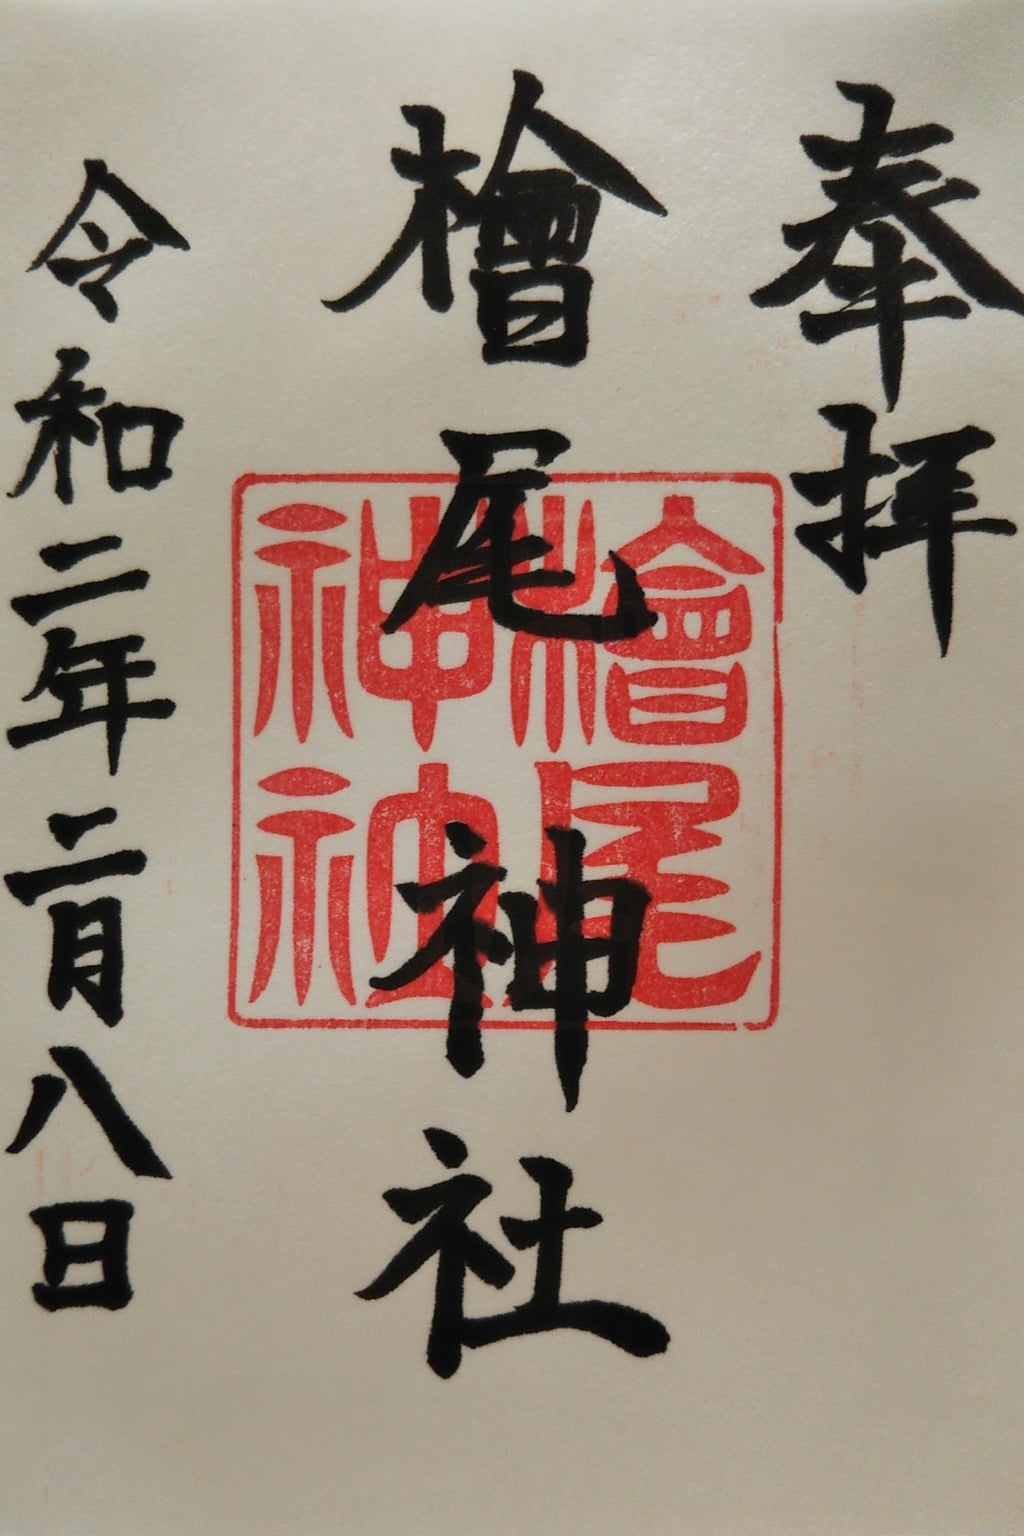 奉拝
檜尾神社
檜尾神社
令和二年二月八日